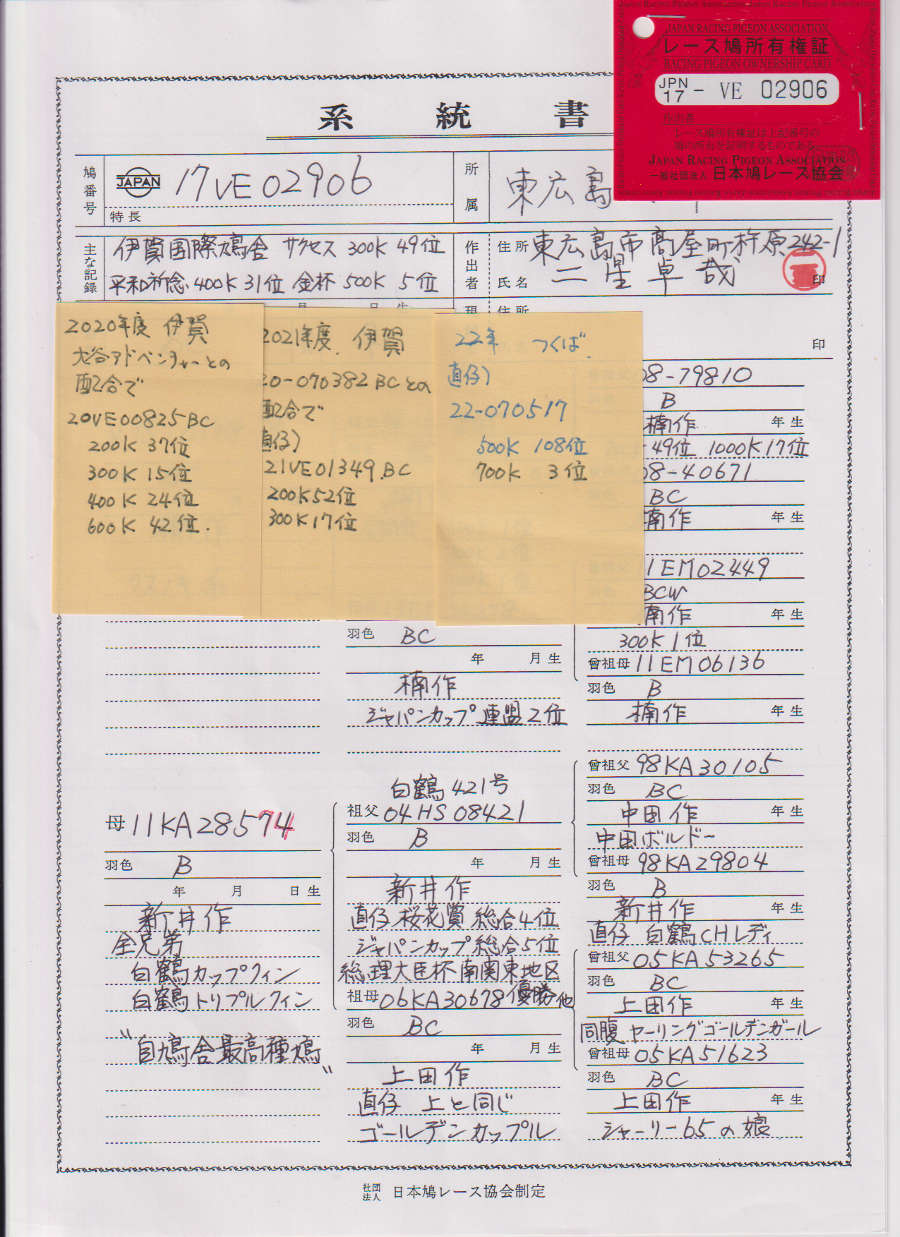 JAPAN RACING PIGEON ASSOCIATION
レース鳩所有権証
RACING PIGEON OWNERSHIP CARD
JPN 17 - VE 02906
レース鳩所有権証は上記番号の
鳩の所有を証明するものである
JAPAN RACING PIGEON ASSOCIATION
一般社団法人 日本鳩レース協会
系統書
鳩番号 JAPAN 17VE02906
特長
所属 東広島
主な記録 伊賀国際鳩舎 サクセス 300K 49位
平和祈念 400K 31位 金杯 500K 5位
作出者 住所 東広島市高屋町杵原242-1
氏名 二星卓哉 印
印
2020年度 伊賀
大谷アドベンチャーとの
配合で
20VE00825BC
200K 37位
300K 15位
400K 24位
600K 42位.
2021年度. 伊賀
20-070382BCとの
配合で
直仔)
21VE01349BC
200K52位
300K17位
22年 つくば.
直仔)
22-070517
500K 108位
700K 3位
08-79810
B
楠作 年生
49位 1000K17位
08-40671
BC
楠作 年生
11EM02449
BCW
楠作 年生
300K1位
曾祖母 11EM06136
羽色 B
楠作 年生
羽色 BC
年 月生
楠作
ジャパンカップ 連盟2位
母 11KA28574
羽色 B
年 月 日生
新井作
全兄弟
白鶴カップクィン
白鶴トリプルクィン
"自鳩舎最高種鳩"
白鶴421号
祖父 04HS08421
羽色 B
年 月生
新井作
直仔 桜花賞 総合4位
ジャパンカップ総合5位
総理大臣杯南関東地区
祖母 06KA30678 優勝他
羽色 BC
年 月生
上田作
直仔 上と同じ
ゴールデンカップル
曾祖父 98KA30105
羽色 BC
中田作 年生
中国ボルドー
曾祖母 98KA29804
羽色 B
新井作 年生
直仔 白鶴CHレディ
曾祖父 05KA53265
羽色 BC
上田作 年生
同腹 ヤーリングゴールデンガール
曾祖母 05KA51623
羽色 BC
上田作 年生
シャーリー65の娘
社団法人 日本鳩レース協会制定